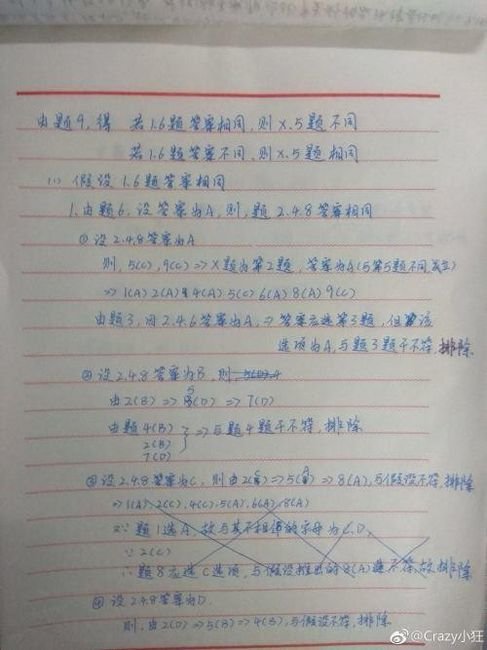 由题9，得 若1.6题答案相同，则X.5题不同
若1.6题答案不同，则X.5题相同
(1) 假设1.6题答案相同
1.由题6，设答案为A，则，题2.4.8答案相同
① 设2.4.8答案为A
则，5(C)，9(C) => X题为第2题，答案为A(与第5题不同，成立)
=> 1(A) 2(A) 4(A) 5(C) 6(A) 8(A) 9(C)
由题3，因2.4.6答案为A，=> 答案应选第3题，但该
选项为A，与题3题干不符，排除
② 设2.4.8答案为B，则，
由2(B) => 5(D) => 7(D)
由题4(B)
2(B)
7(D)
=> 与题4题干不符，排除
③ 设2.4.8答案为C，则由2(C) => 5(A) => 8(A)，与假设不符，排除
=> 1(A) 2(C) 4(C) 5(A) 6(A) 8(A)
∵ 题1选A，故与其不相邻的字母为C.D，
∵ 2(C)
∴ 题8应选C选项，与假设推出的8(A)不符，故排除
④ 设2.4.8答案为D
则，由2(D) => 5(B) => 4(B)，与假设不符，排除
@Crazy小狂